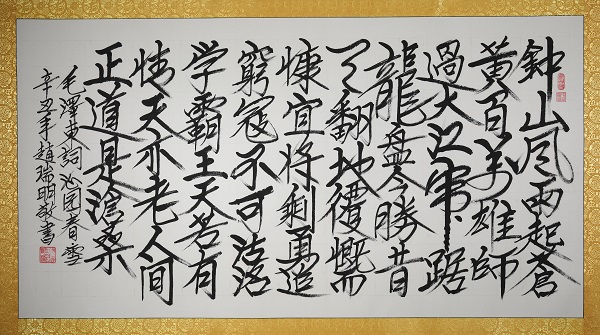 鈡山风雨起蒼
黄百万雄師
過大江虎踞
龍盤今勝昔
天翻地覆慨而
慷宜将剩勇追
窮寇不可沽名
学霸王天若有
情天亦老人间
正道是滄桑
毛澤東詞沁园春雪
辛丑年趙瑞明敬書